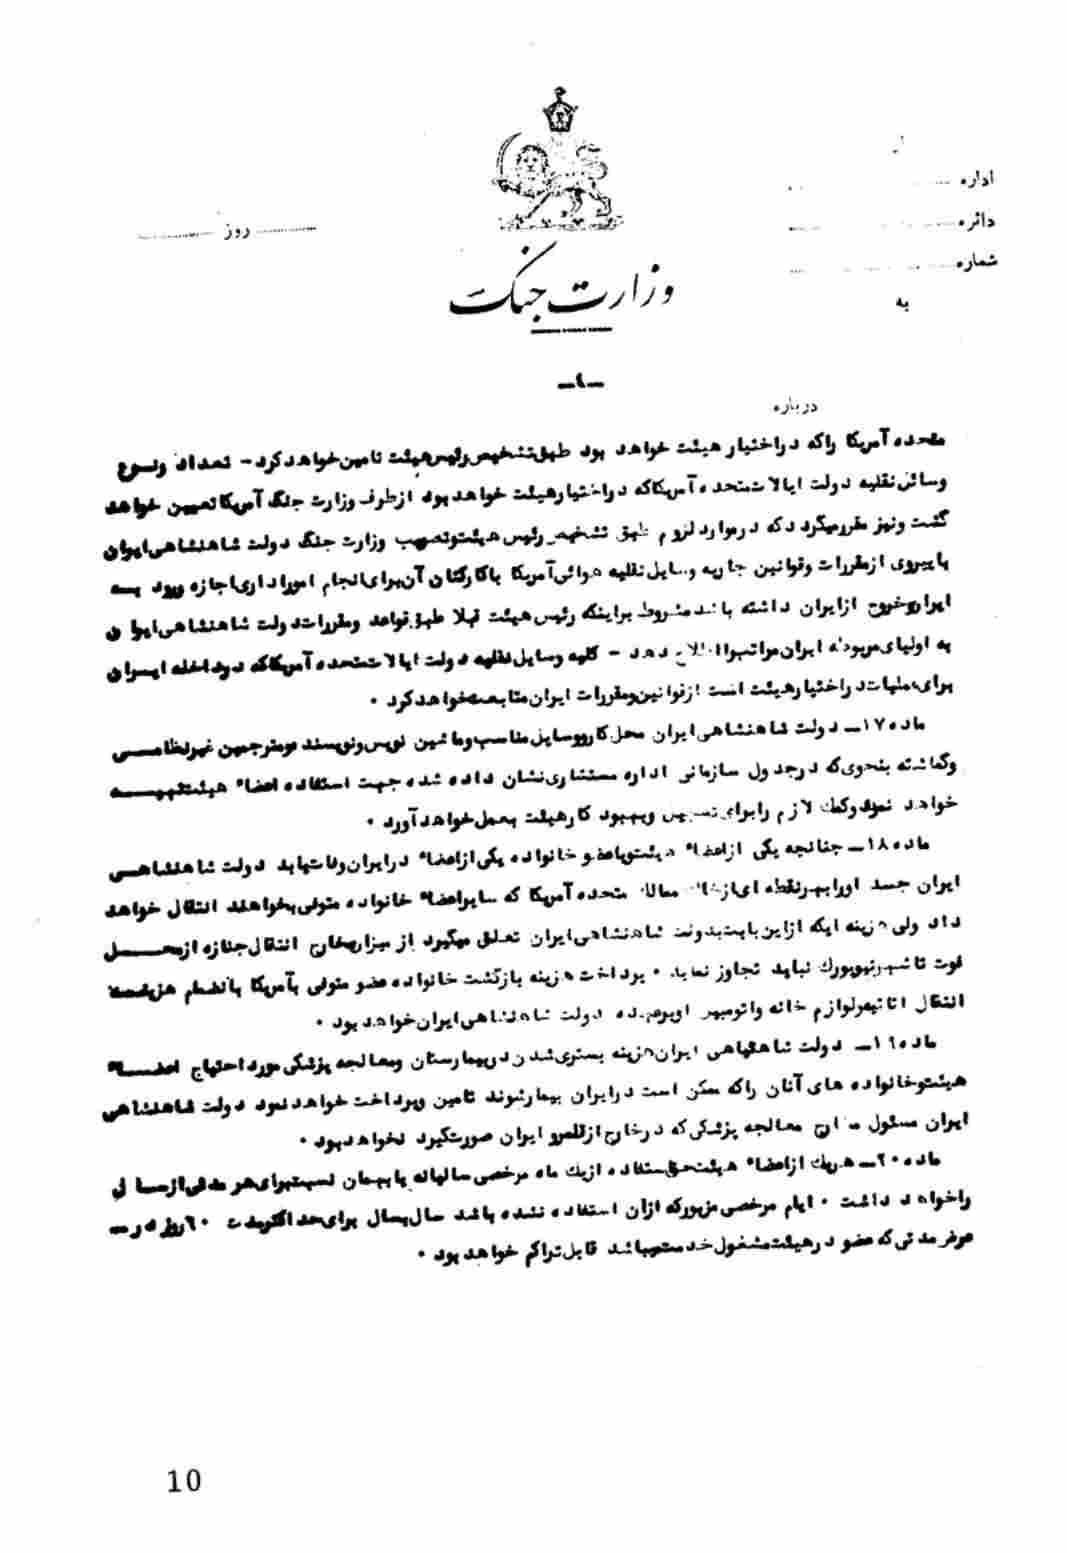 اداره
دائره
شماره
به
روز
وزارت جنگ
درباره
متحده آمریکا راکه دراختیار هیئت خواهد بود طبق تشخیص رئیس هیئت تامین خواهد کرد - تعداد ونوع
وسائل نقلیه دولت ایالات متحده آمریکاکه دراختیار هیئت خواهد بود ازطرف وزارت جنگ آمریکا تعیین خواهد
گشت ونیز مقررمیگردد که درموارد لزوم طبق تشخیص رئیس هیئت وتصویب وزارت جنگ دولت شاهنشاهی ایران
باپیروی ازمقررات وقوانین جاریه وسایل نقلیه هوائی آمریکا باکارکنان آن برای انجام اموراداری اجازه ورود بـه
ایران وخروج ازایران داشته باشد مشروط براینکه رئیس هیئت قبلا طبق قواعد ومقررات دولت شاهنشاهی ایران
به اولیای مربوطه ایران مراتب را اطلاع دهد - کلیه وسایل نقلیه دولت ایالات متحده آمریکاکه درداخله ایـران
برای عملیات دراختیار هیئت است ازقوانین ومقررات ایران متابعت خواهد کرد ٠
ماده ١٧ـ دولت شاهنشاهی ایران محل کار ووسایل مناسب وماشین نویس ونویسنده ومترجمین غیرنظامـی
وگماشته بنحوی که درجدول سازمانی اداره مستشاری نشان داده شده جهت استفاده اعضاء هیئت تهیـه
خواهد نمود وکمک لازم را برای تسهیل وبهبود کار هیئت بعمل خواهد آورد ٠
ماده ١٨ـ چنانچه یکی ازاعضاء هیئت ویاعضو خانواده یکی ازاعضاء درایران وفات یابد دولت شاهنشاهـی
ایران جسد اورا بهرنقطه ای ازخاک ممالک متحده آمریکا که سایر اعضاء خانواده متوفی بخواهند انتقال خواهد
داد ولی هزینه ایکه ازاین بابت بدولت شاهنشاهی ایران تعلق میگیرد از میزان مخارج انتقال جنازه ازمحـل
فوت تا شهر نیویورک نباید تجاوز نماید ٠ پرداخت هزینه بازگشت خانواده عضو متوفی بآمریکا بانضمام هزینه
انتقال اثاثیه ولوازم خانه واتومبیل اوبرعهده دولت شاهنشاهی ایران خواهد بود ٠
ماده ١٩ـ دولت شاهنشاهی ایران هزینه بستری شدن دربیمارستان ومعالجه پزشکی مورد احتیاج اعضـاء
هیئت وخانواده های آنان راکه ممکن است درایران بیمار شوند تامین وپرداخت خواهد نمود دولت شاهنشاهی
ایران مسئول مخارج معالجه پزشکی که درخارج ازقلمرو ایران صورت گیرد نخواهد بود ٠
ماده ٢٠ـ هریک ازاعضاء هیئت حق استفاده ازیک ماه مرخصی سالیانه یا بهمان نسبت برای هر مدتی ازسـال
راخواهد داشت ٠ ایام مرخصی مزبورکه ازآن استفاده نشده باشد سال بسال برای حداکثر مدت ٦٠ روز در
هر مدتی که عضو درهیئت مشغول خدمت میباشد قابل تراکم خواهد بود ٠
10